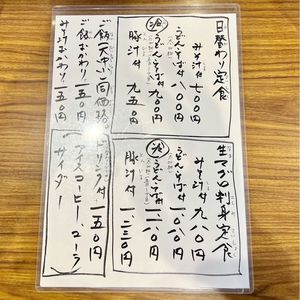 日替わり定食
みそ汁付 七〇〇円
うどん・そば付 八〇〇円
うどん・そば付 九〇〇円
豚汁付 九五〇円
生マグロ刺身定食
みそ汁付 九八〇円
うどん・そば付 一、〇八〇円
うどん・そば付 一、一八〇円
豚汁付 一、二三〇円
ご飯(大中小)同価格
ご飯おかわり 一五〇円
みそ汁おかわり 一五〇円
ドリンク付 一五〇円
アイスコーヒー、コーラ
サイダー